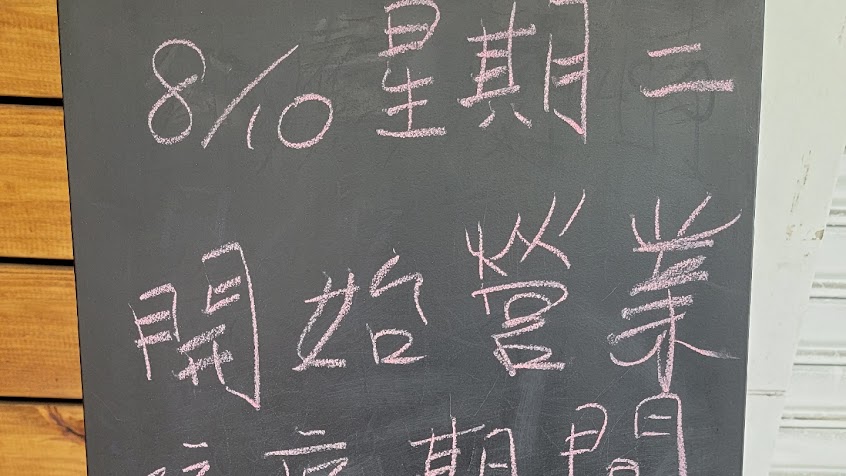 8/10 星期二
開始營業
期間